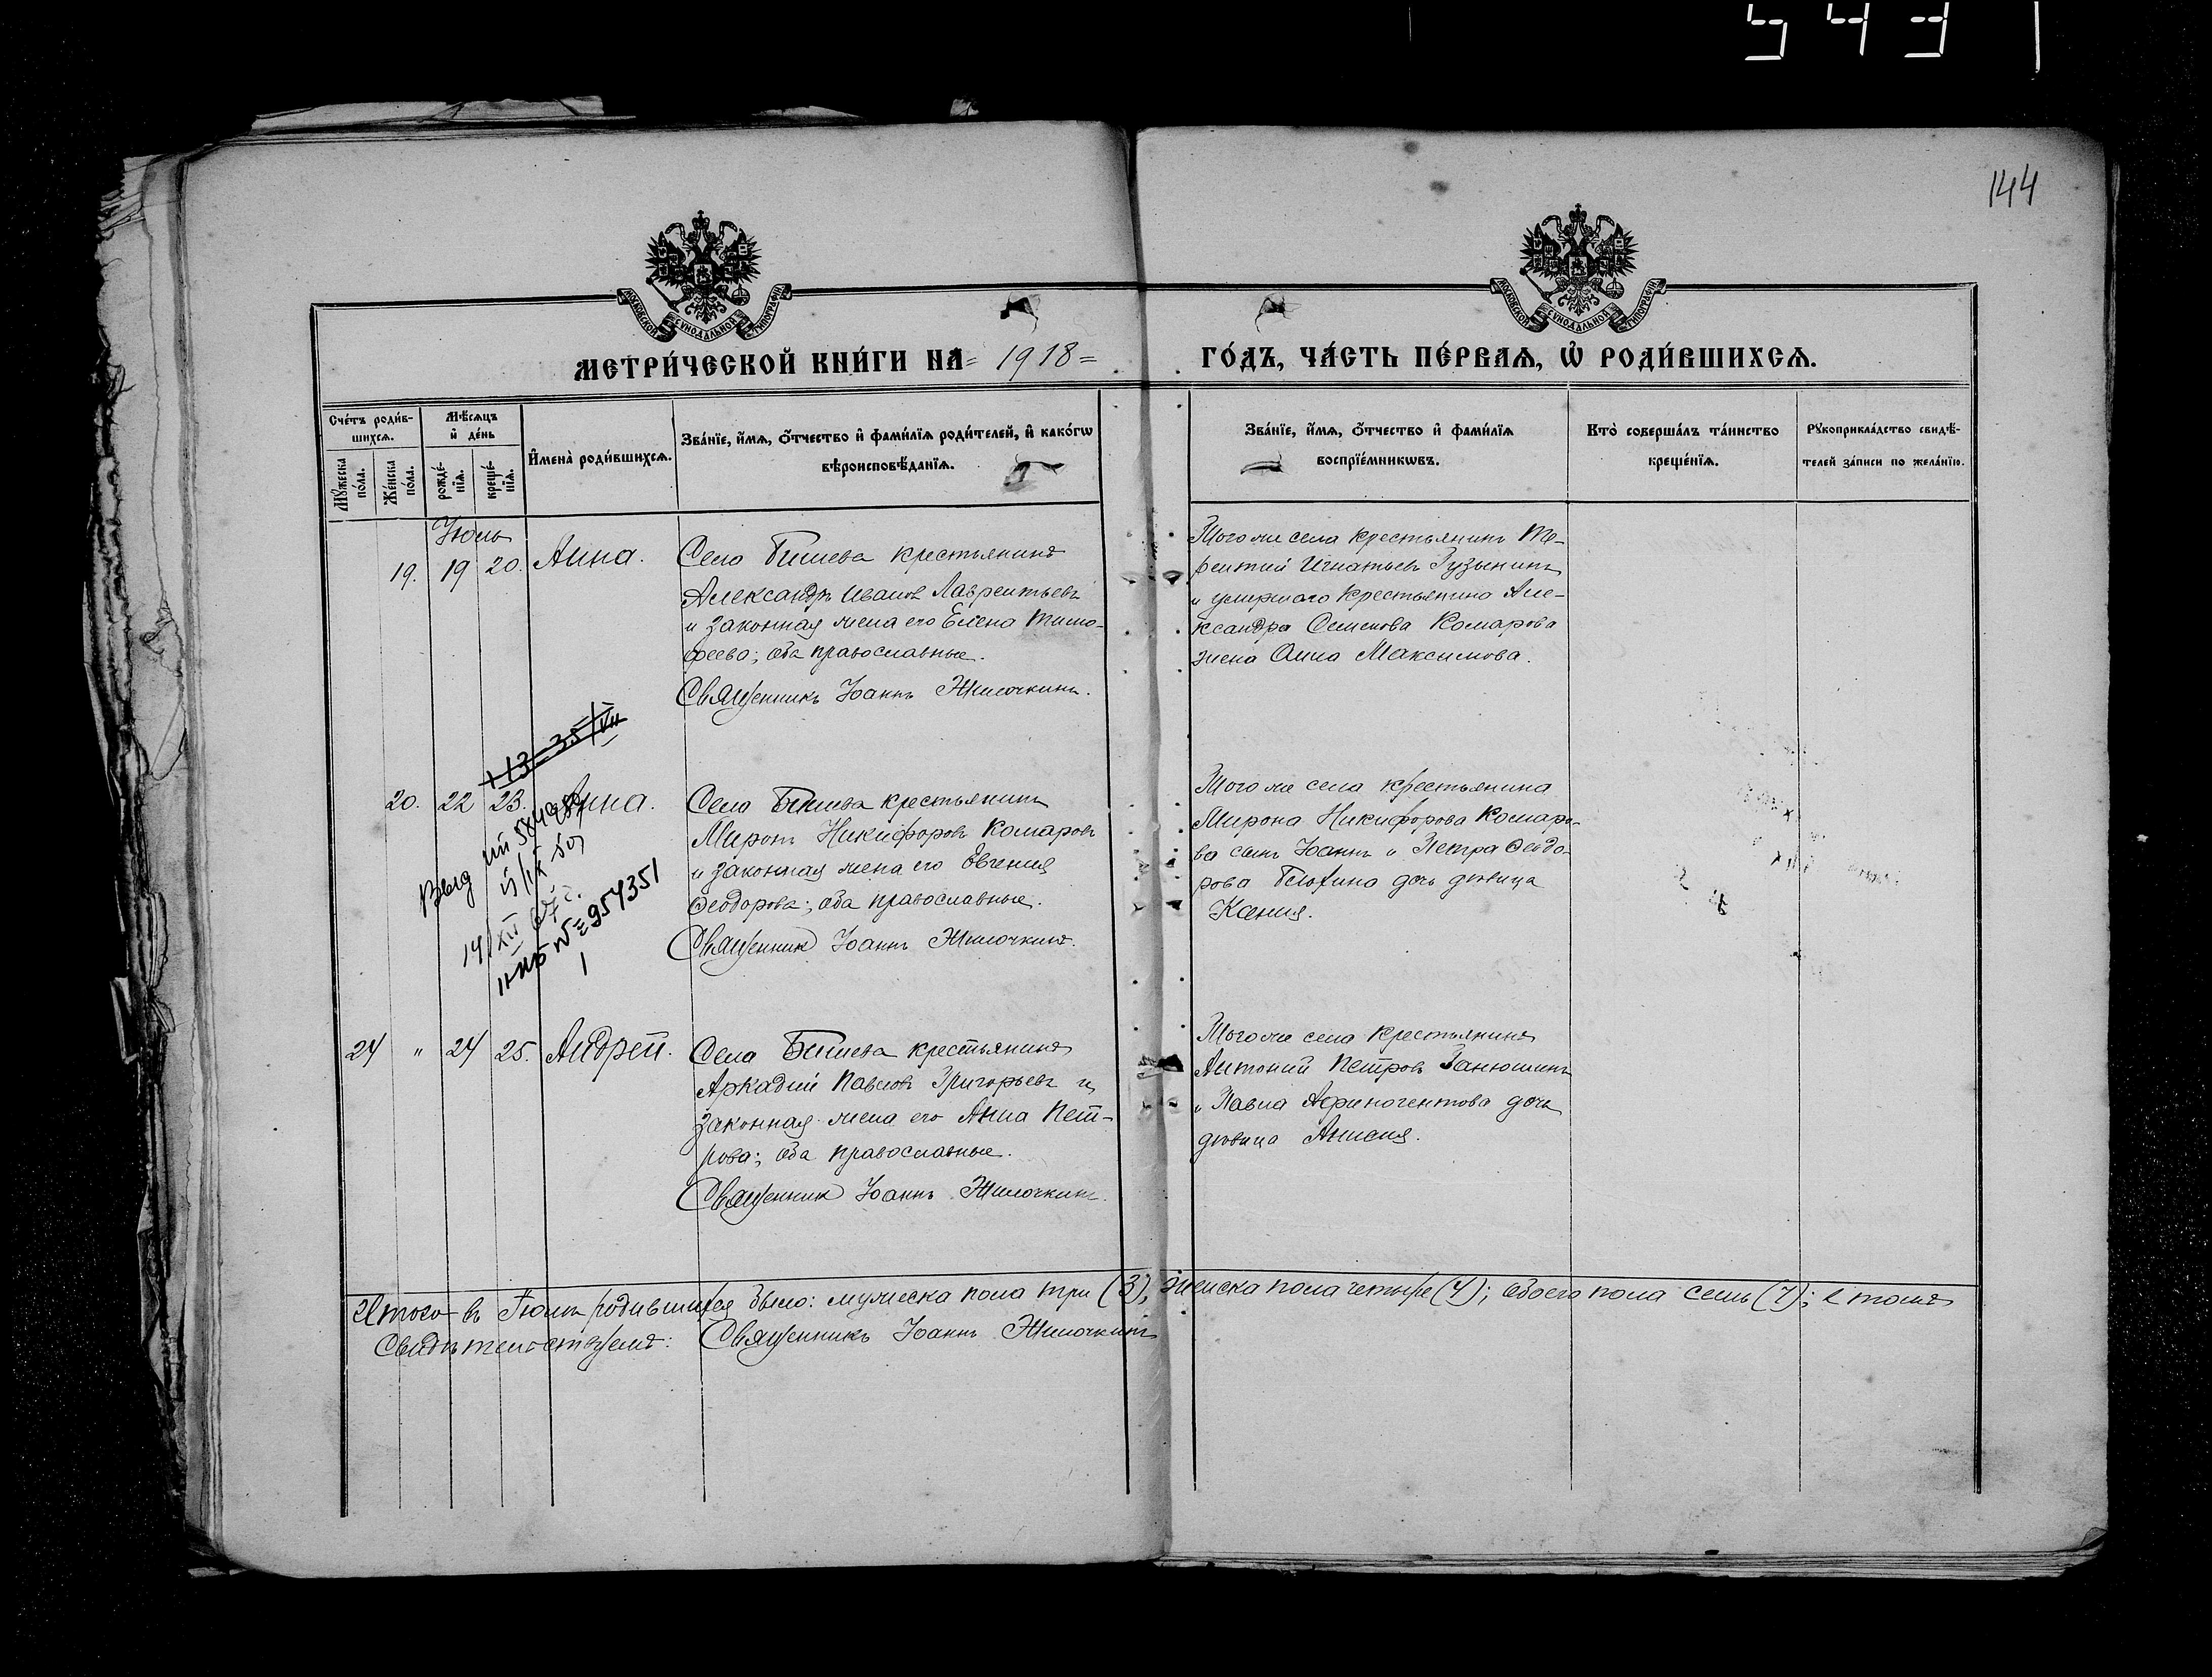 5431
144
МОСКОВСКОЙ СУНОДАЛЬНОЙ ТИПОГРАФІИ
МОСКОВСКОЙ СУНОДАЛЬНОЙ ТИПОГРАФІИ
МЕТРИ́ЧЕСКОЙ КНИ́ГИ НА = 1918 = ГО́ДЪ, ЧА́СТЬ ПЕ́РВАѦ, Ѡ҆ РОДИ́ВШИХСѦ.
Сче́тъ роди́в-
шихсѧ.
Мꙋ́жеска по́ла.
Же́нска по́ла.
Мѣ́сѧцъ
и҆ де́нь
рожде́-
нїѧ.
креще́-
нїѧ.
И҆мена̀ роди́вшихсѧ.
Зва́нїе, и҆́мѧ, ѻ҆́тчество и҆ фами́лїѧ роди́телей, и҆ како́гѡ
вѣроисповѣ́данїѧ.
Зва́нїе, и҆́мѧ, ѻ҆́тчество и҆ фами́лїѧ
воспрїе́мникѡвъ.
Кто̀ соверша́лъ та́инство
креще́нїѧ.
Рꙋкоприкла́дство свидѣ́-
телей за́писи по жела́нїю.
Іюль
19. 19 20. Анна.
Села Бишева крестьянинъ
Александръ Ивановъ Лаврентьевъ
и законная жена его Елена Тимо-
феева; оба православные.
Священникъ Іоаннъ Жилочкинъ.
Того же села крестьянинъ Те-
рентий Игнатьевъ Гузынинъ
и умершаго крестьянина Але-
ксандра Семенова Комарова
жена Анна Максимова.
20. 22 23. Анна.
Села Бишева крестьянинъ
Миронъ Никифоровъ Комаровъ
и законная жена его Евгения
Феодорова; оба православные.
Священник Іоаннъ Жилочкинъ.
Того же села крестьянина
Мирона Никифорова Комаро-
ва сынъ Іоаннъ и Петра Феодо-
рова дочь девица
Ксения.
№ 954351
24 " 24 25. Андрей.
Села Бишева крестьянинъ
Аркадий Павловъ Григорьевъ и
законная жена его Анна Пет-
рова; оба православные.
Священник Іоаннъ Жилочкинъ.
Того же села крестьянинъ
Антоний Петровъ Ванюшинъ
и Павла Афиногентова дочь
девица Анисия.
Итого въ Іюлѣ родившихся было: мужеска пола три (3), женска пола четыре (4); обоего пола семь (7); в томъ
свидѣтельствуемъ: Священникъ Іоаннъ Жилочкинъ